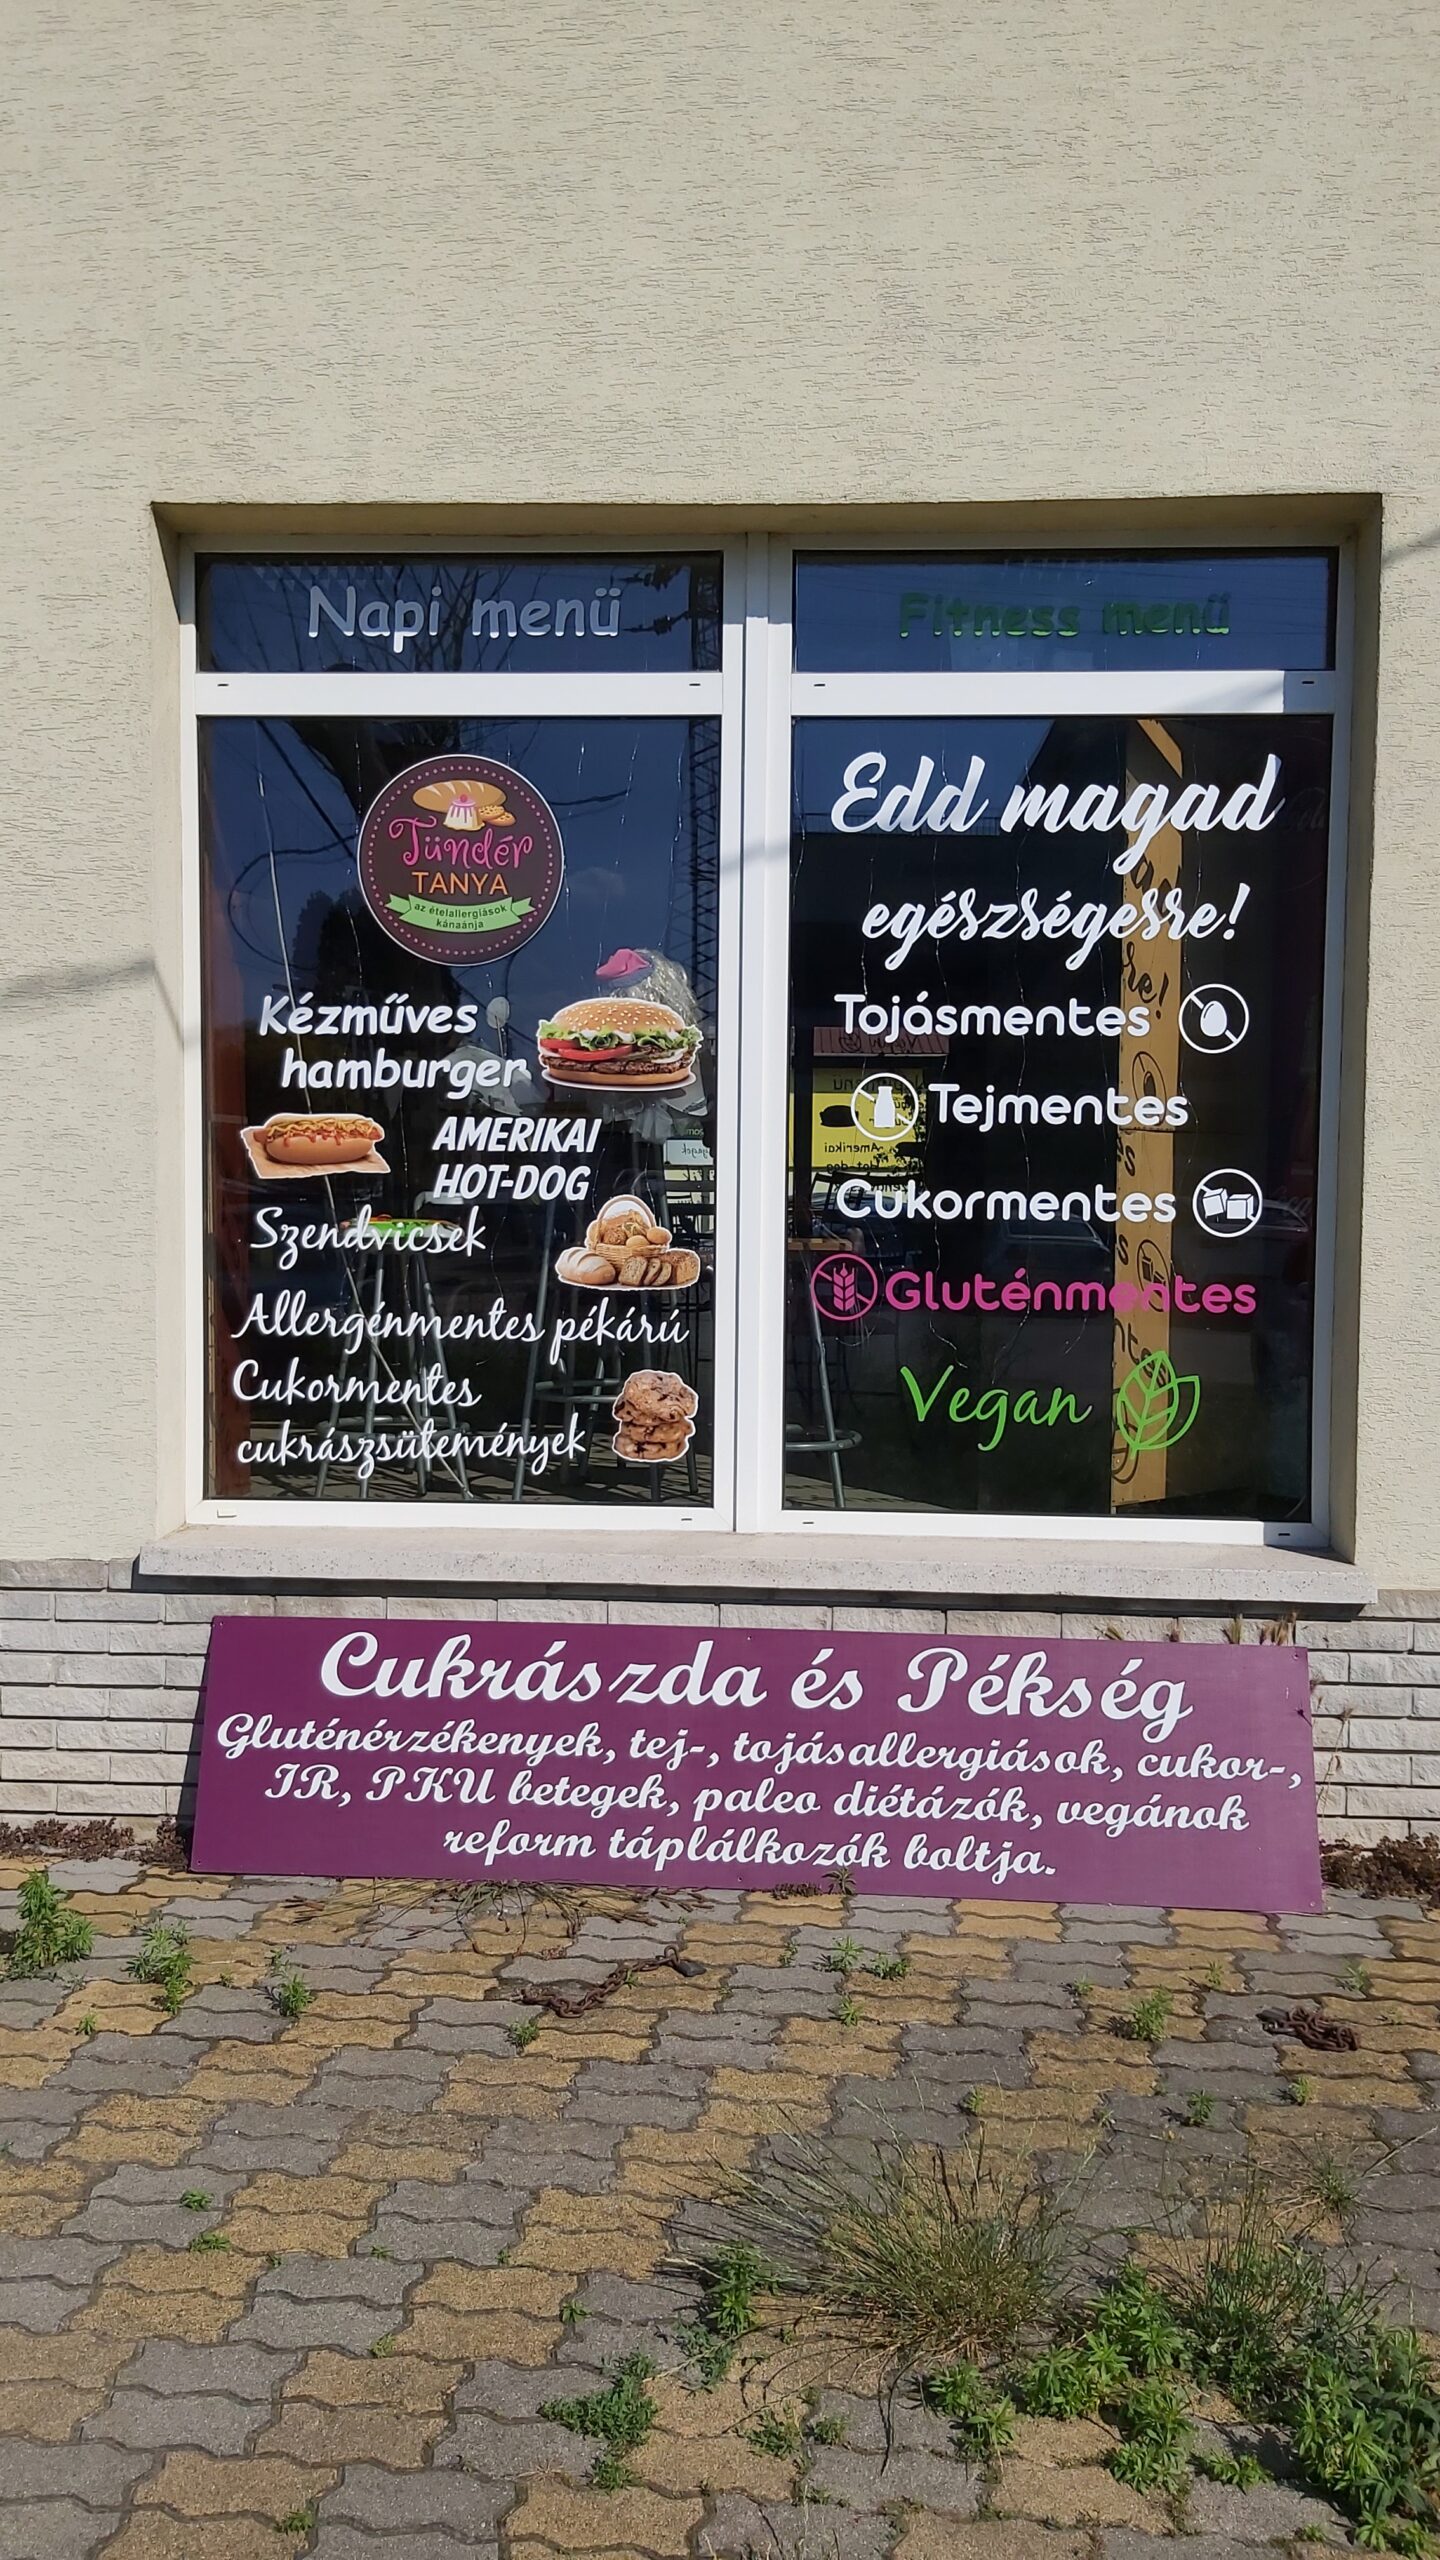 Napi menü
Tündér
TANYA
az ételallergiások
kánaánja
Kézműves
hamburger
AMERIKAI
HOT-DOG
Szendvicsek
Allergénmentes pékárú
Cukormentes
cukrászsütemények
Fitness menü
Edd magad
egészségesre!
Tojásmentes
Tejmentes
Cukormentes
Gluténmentes
Vegan
Cukrászda és Pékség
Gluténérzékenyek, tej-, tojásallergiások, cukor-,
IR, PKU betegek, paleo diétázók, vegánok
reform táplálkozók boltja.